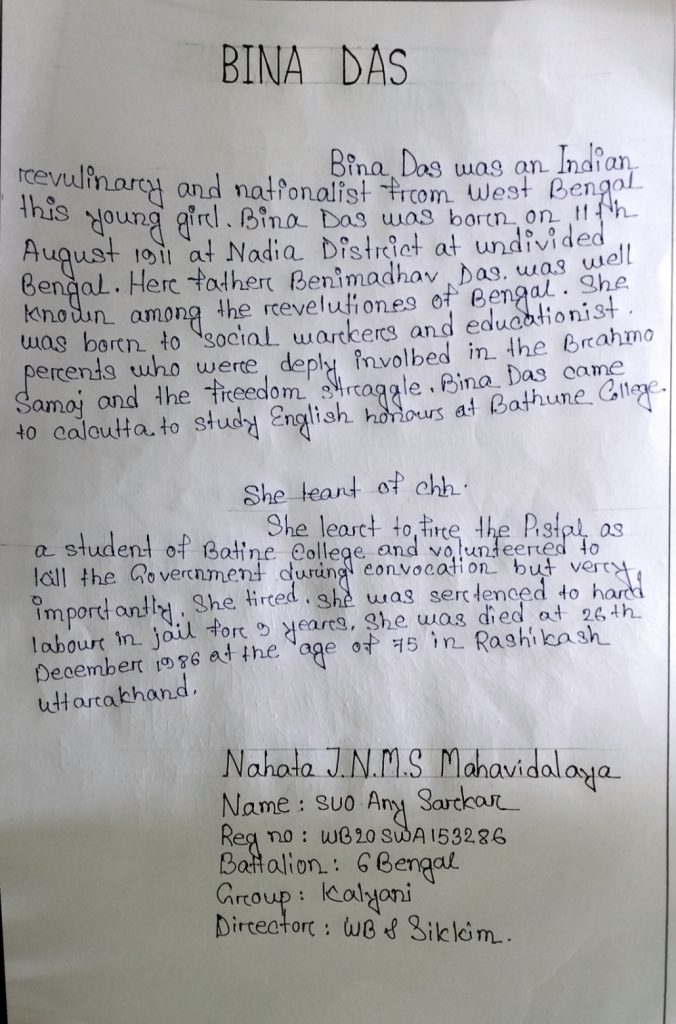 BINA DAS
Bina Das was an Indian
revulinary and nationalist from West Bengal
this young girl. Bina Das was born on 11th
August 1911 at Nadia District at undivided
Bengal. Her father Benimadhav Das. was well
known among the revelutiones of Bengal. She
was born to social warkers and educationist.
percents who were deply involbed in the Brahmo
Samaj and the freedom straggle. Bina Das came
to calcutta to study English honours at Bathune College.
She leant of chh.
She leart to fire the Pistal as
a student of Batine College and volunteered to
kill the Government during convocation but very
importantly. She fired. She was sentenced to hard
labour in jail for 9 years. She was died at 26th
December 1986 at the age of 75 in Rashikash
uttarakhand.
Nahata J.N.M.S Mahavidalaya
Name : SUO Any Sarkar
Reg no : WB20SWA153286
Battalion : 6 Bengal
Group : Kalyani
Director : WB & Sikkim.